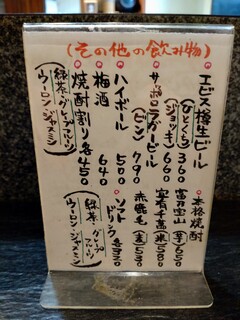 (その他の飲み物)
エビス樽生ビール
(ひとくち) 360
(ジョッキ) 660
サッポロラガービール
(ビン) 790
ハイボール 500
梅酒 640
焼酎割り各450
(緑茶・グレープフルーツ
ウーロン・ジャスミン)
本格焼酎
富乃宝山 (芋) 650
吉有千萬 (米) 580
赤鹿毛 (麦) 530
ソフトドリンク 各330
(緑茶・グレープフルーツ
ウーロン・ジャスミン)